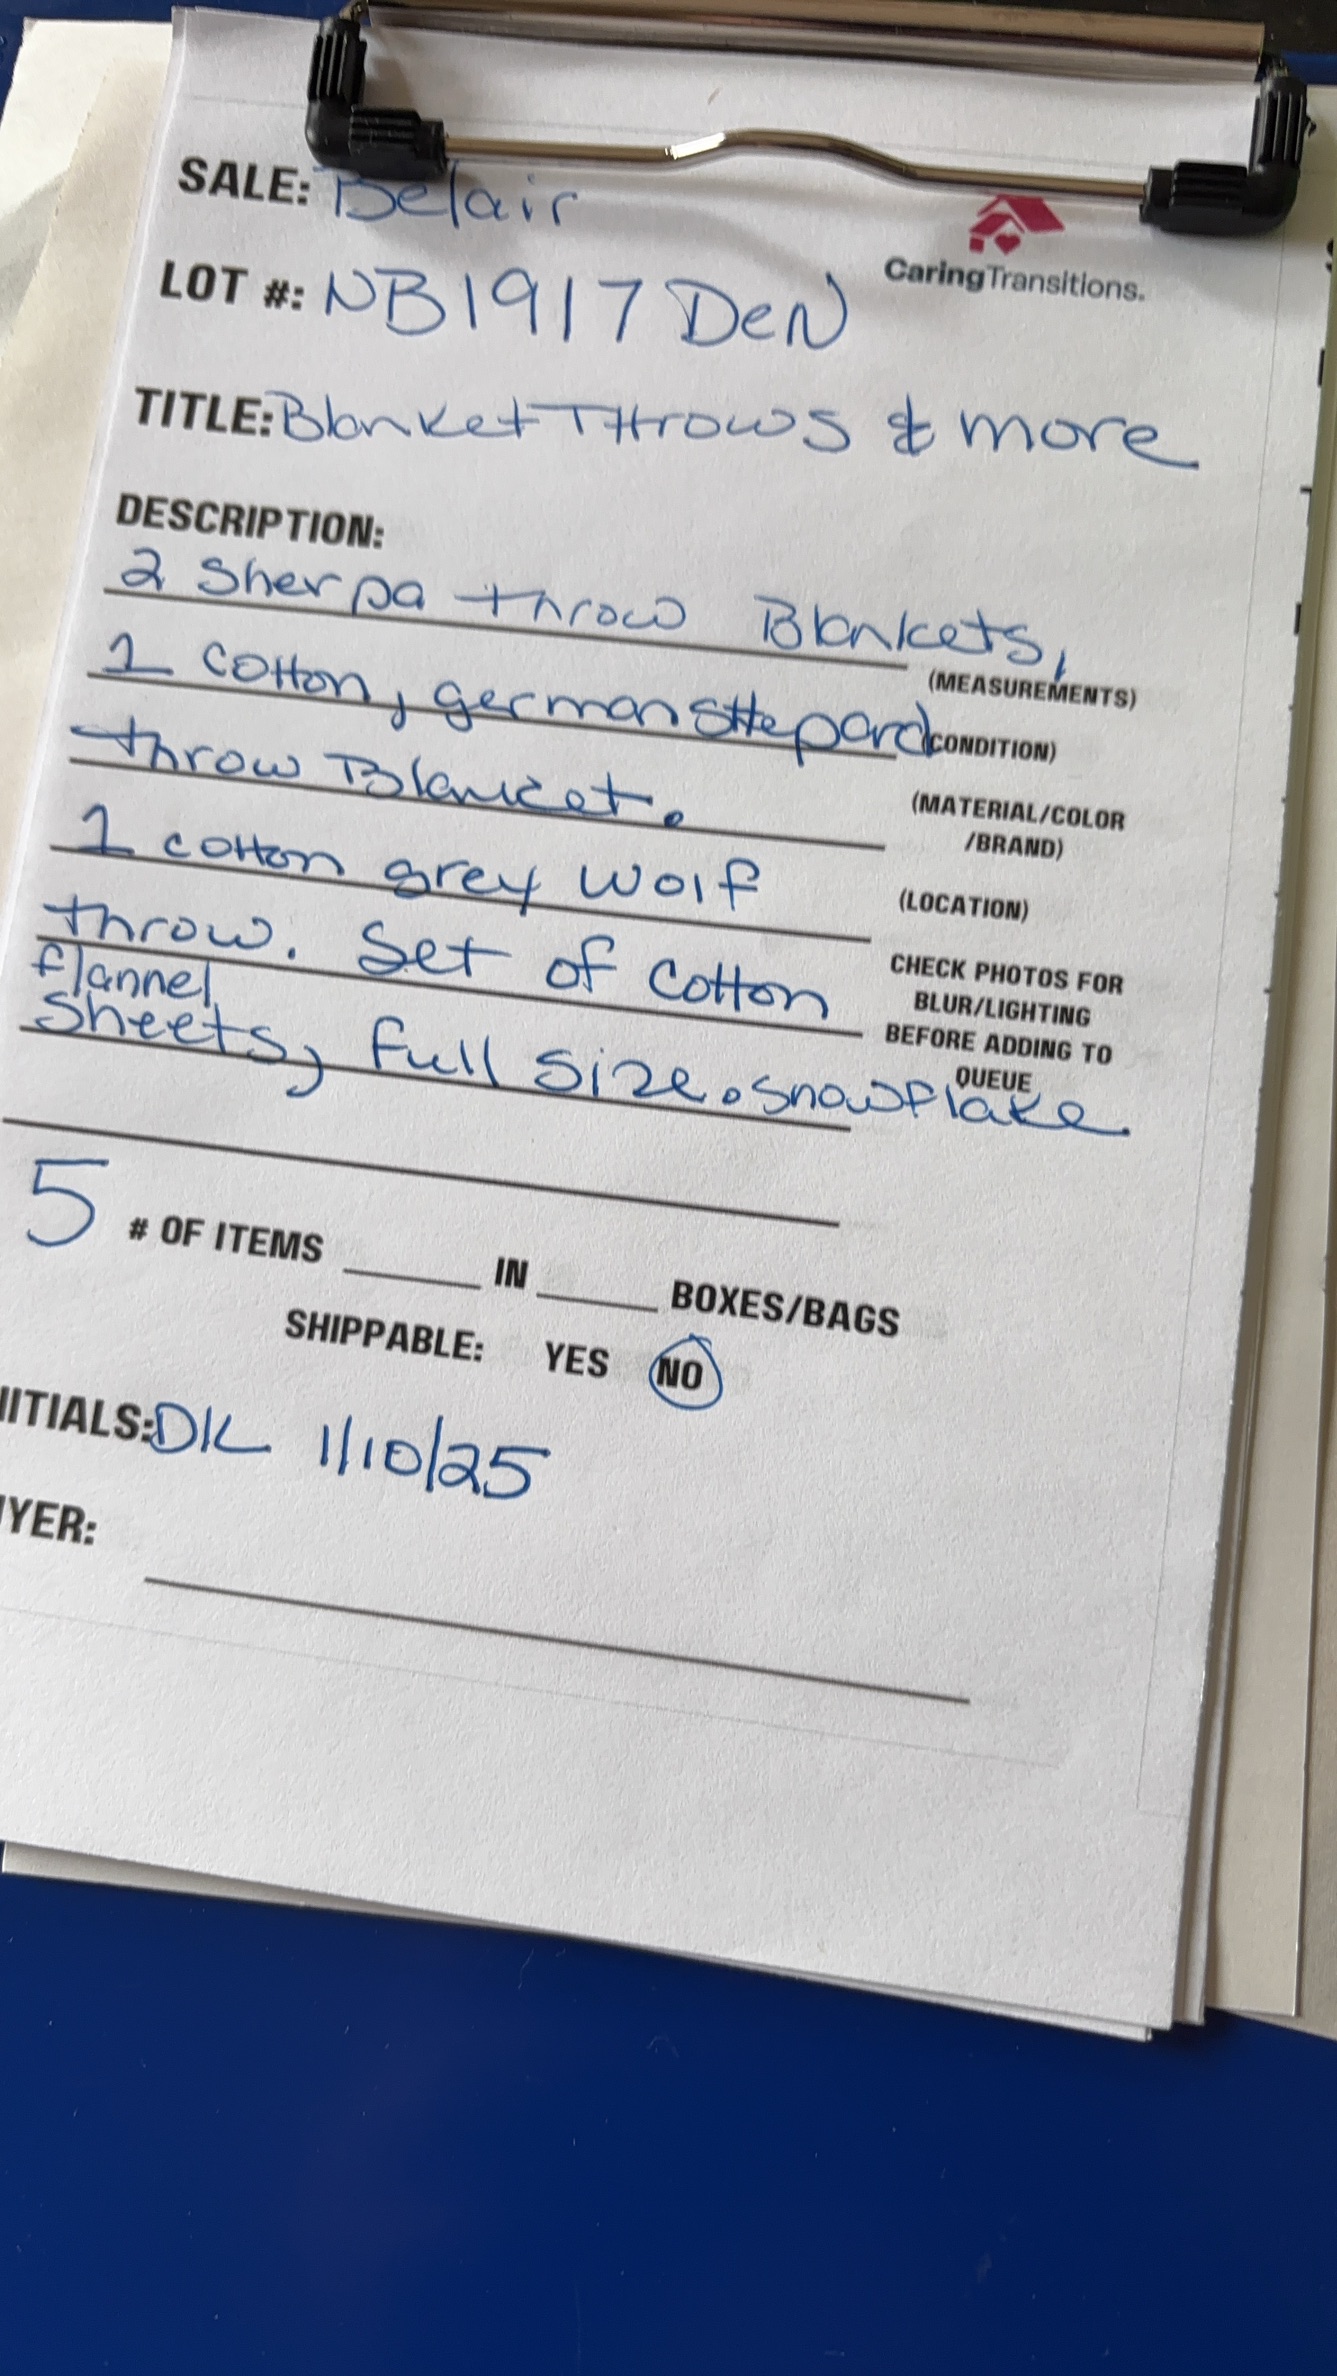 SALE: Belair
CaringTransitions.
LOT #: NB1917 DeN
TITLE: Blanket THrows & more
DESCRIPTION:
2 Sherpa throw Blankets,
(MEASUREMENTS)
1 cotton, german SHepard
(CONDITION)
throw Blanket.
(MATERIAL/COLOR
/BRAND)
1 cotton grey wolf
(LOCATION)
throw. Set of cotton
CHECK PHOTOS FOR
BLUR/LIGHTING
BEFORE ADDING TO
QUEUE
flannel
Sheets, full size. snowflake
5 # OF ITEMS ____ IN ____ BOXES/BAGS
SHIPPABLE: YES NO
NITIALS: DK 1/10/25
YER: